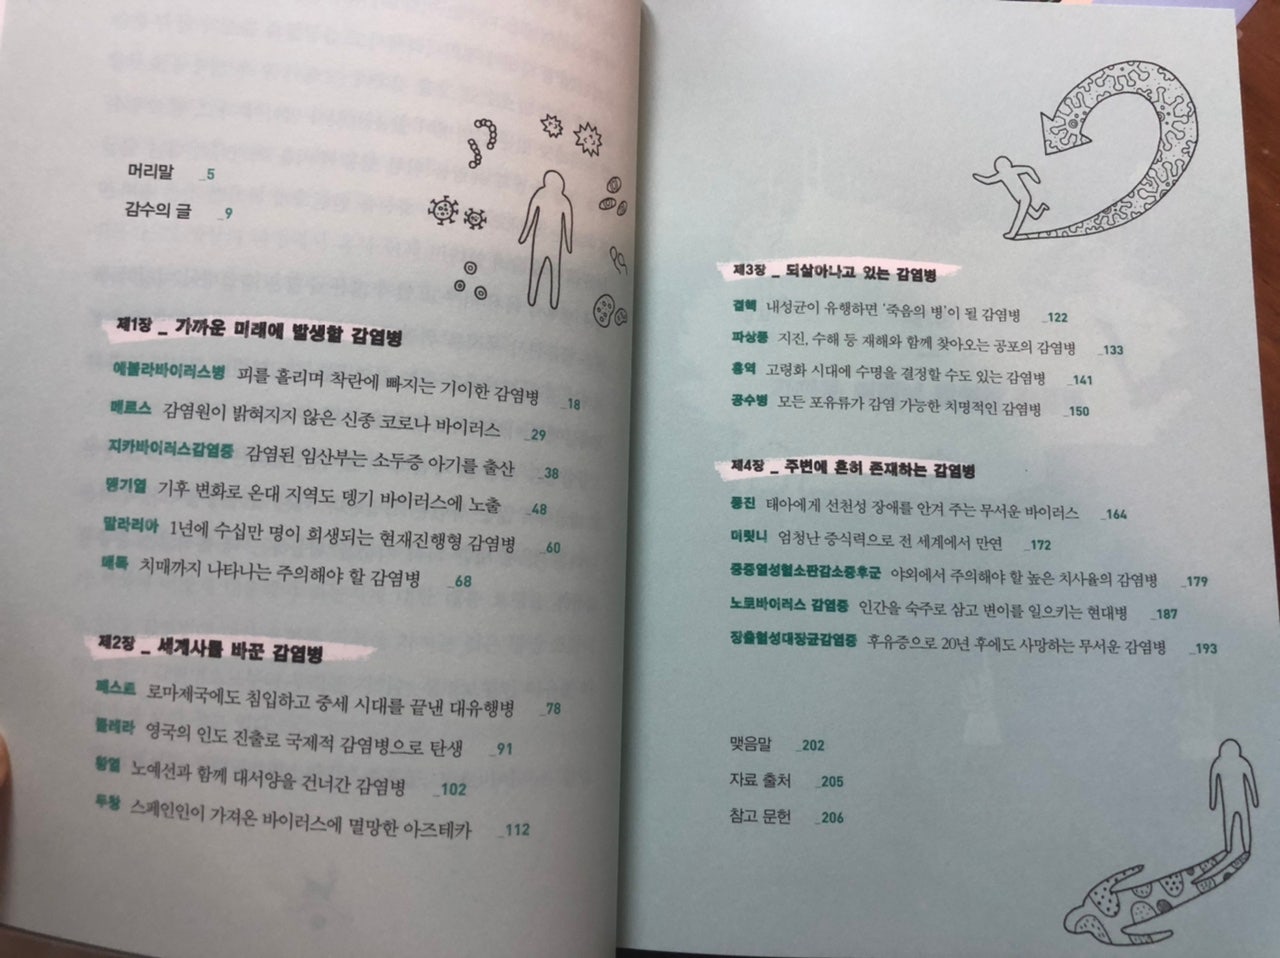 머리말 _5
감수의 글 _9
제1장 _ 가까운 미래에 발생할 감염병
에볼라바이러스병 피를 흘리며 착란에 빠지는 기이한 감염병 _18
메르스 감염원이 밝혀지지 않은 신종 코로나 바이러스 _29
지카바이러스감염증 감염된 임산부는 소두증 아기를 출산 _38
뎅기열 기후 변화로 온대 지역도 뎅기 바이러스에 노출 _48
말라리아 1년에 수십만 명이 희생되는 현재진행형 감염병 _60
매독 치매까지 나타나는 주의해야 할 감염병 _68
제2장 _ 세계사를 바꾼 감염병
페스트 로마제국에도 침입하고 중세 시대를 끝낸 대유행병 _78
콜레라 영국의 인도 진출로 국제적 감염병으로 탄생 _91
황열 노예선과 함께 대서양을 건너간 감염병 _102
두창 스페인인이 가져온 바이러스에 멸망한 아즈테카 _112
제3장 _ 되살아나고 있는 감염병
결핵 내성균이 유행하면 '죽음의 병'이 될 감염병 _122
파상풍 지진, 수해 등 재해와 함께 찾아오는 공포의 감염병 _133
홍역 고령화 시대에 수명을 결정할 수도 있는 감염병 _141
공수병 모든 포유류가 감염 가능한 치명적인 감염병 _150
제4장 _ 주변에 흔히 존재하는 감염병
풍진 태아에게 선천성 장애를 안겨 주는 무서운 바이러스 _164
머릿니 엄청난 증식력으로 전 세계에서 만연 _172
중증열성혈소판감소증후군 야외에서 주의해야 할 높은 치사율의 감염병 _179
노로바이러스 감염증 인간을 숙주로 삼고 변이를 일으키는 현대병 _187
장출혈성대장균감염증 후유증으로 20년 후에도 사망하는 무서운 감염병 _193
맺음말 _202
자료 출처 _205
참고 문헌 _206